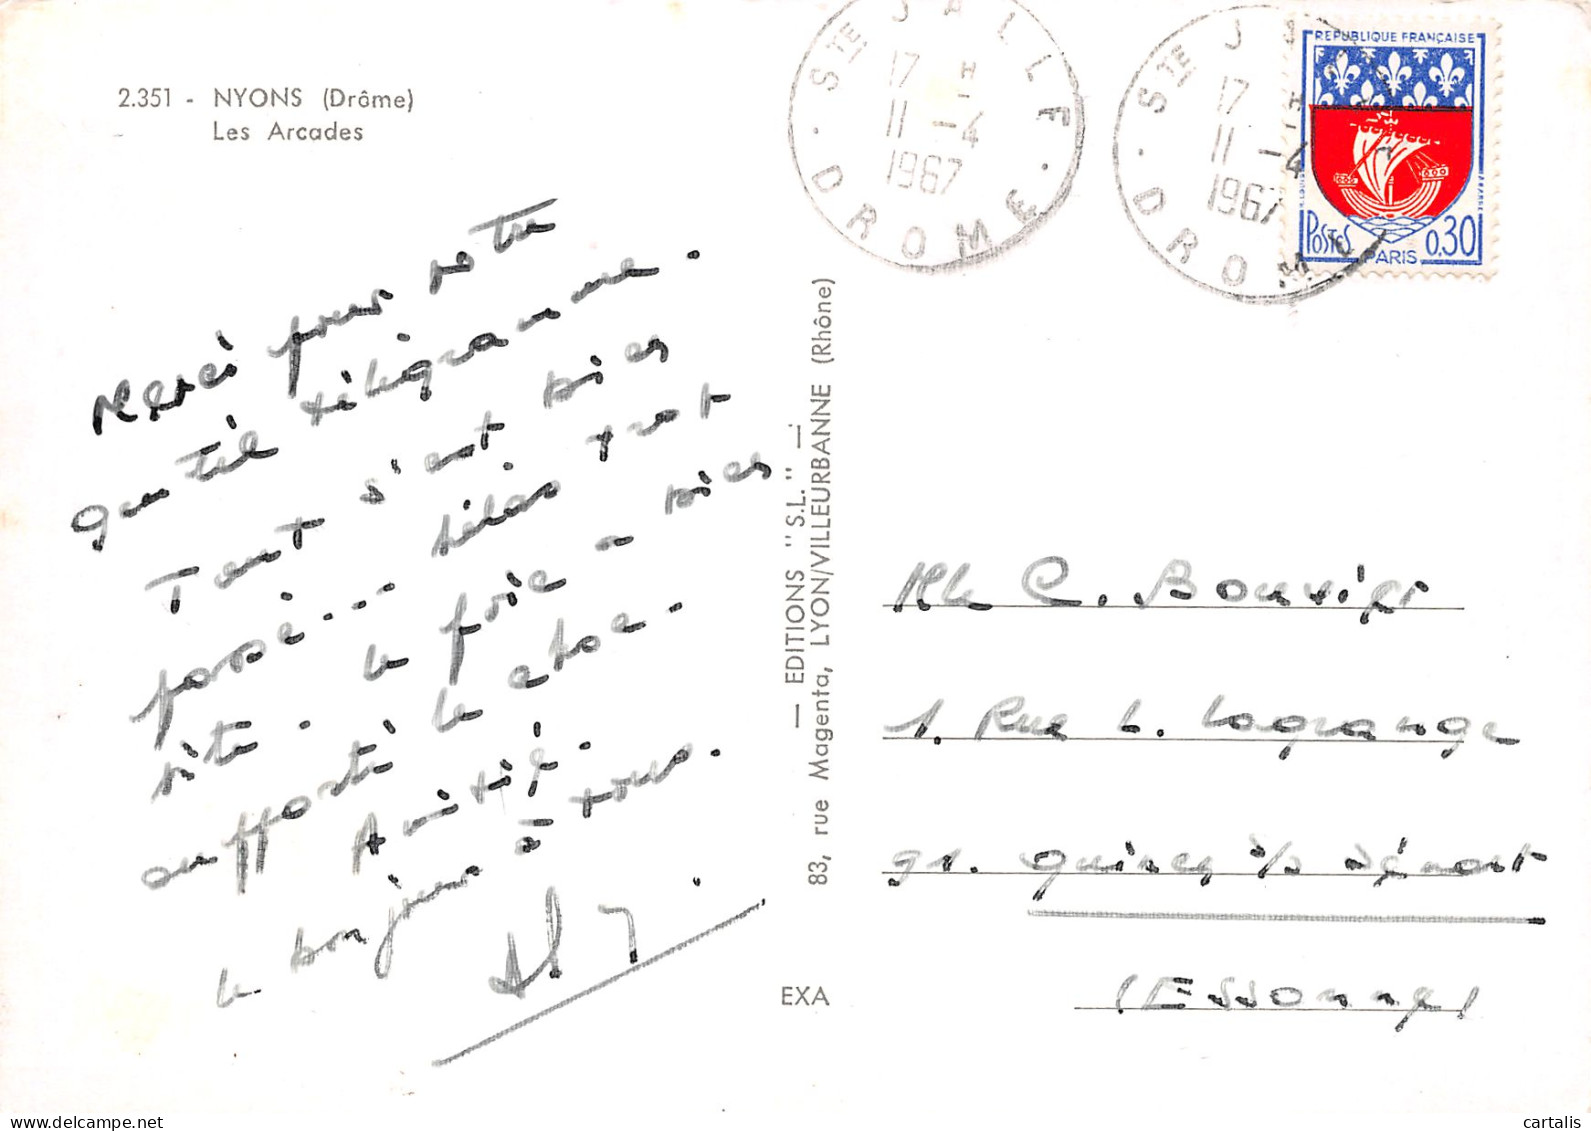 2.351 - NYONS (Drôme)
Les Arcades
Merci pour votre
gentil télégramme.
Tout s'est bien
passé... hélas trop
vite. le foie a bien
supporté le choc.
Amitié.
le bonjour à tous.
— EDITIONS "S.L." —
83, rue Magenta, LYON/VILLEURBANNE (Rhône)
EXA
STE JALLE
17 H
11 -4
1967
DROME
STE J
17 H
11 -4
1967
DROM
REPUBLIQUE FRANÇAISE
POSTES
0,30
PARIS
Mle C. Bouvier
1. Rue L. Lagrange
91. Quincy s/s Sénart
(Essonne)
cartalis